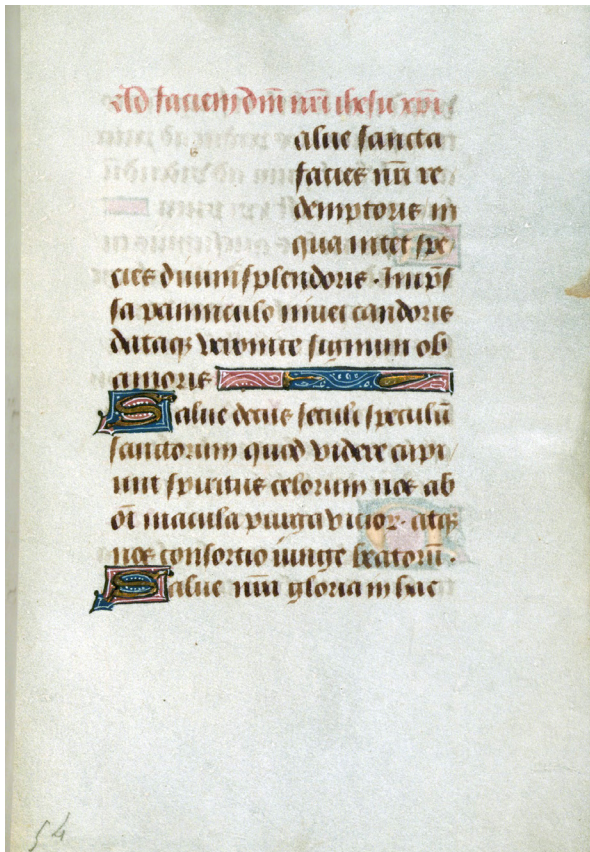 Ad faciem dm̄ nr̄i ihesu xp̄i
alue sancta
facies nr̄i re
demptoris in
qua nitet spe
cies diuini splendoris · Imp̄s
sa panniculo niuei candoris
dataqꝫ veronice signum ob
amoris
Salue decus seculi speculū
sanctorum quod videre cupi
unt spiritus celorum nos ab
oī macula purga vicior· atqꝫ
nos consortio iunge beatorū ·
Salue nr̄a gloria in hac
54